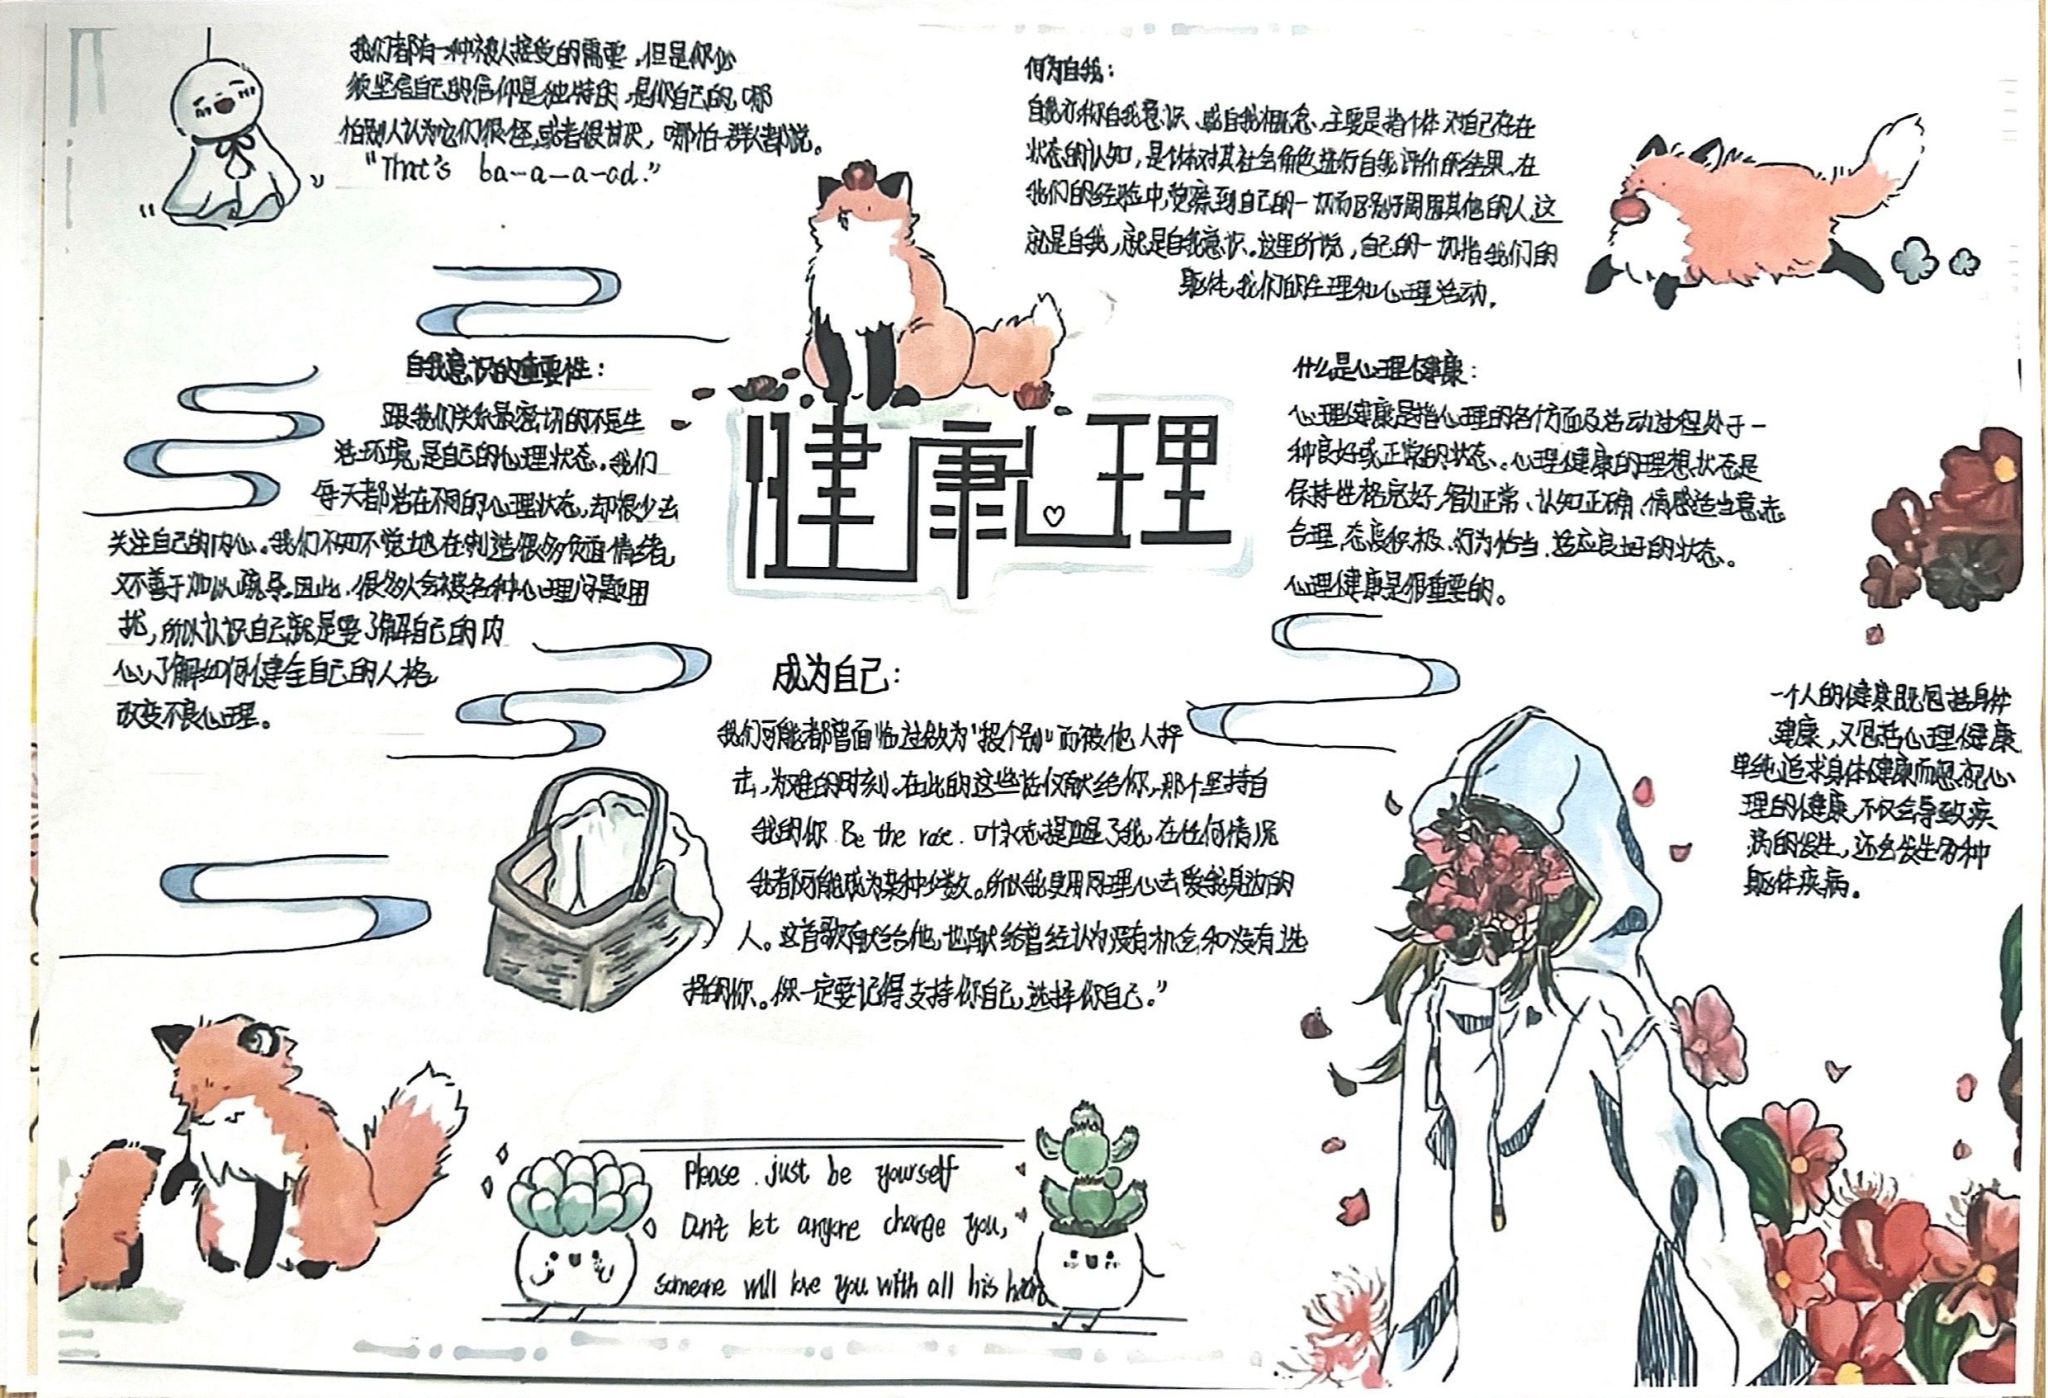 我们都有一种被人接受的需要，但是你必
须坚信自己的信仰是独特的，是你自己的，哪
怕别人认为它们很怪，或者很讨厌，哪怕一群人都说。
"That's ba-a-a-ad."
何为自我：
自我亦称自我意识、或自我概念，主要是指个体对自己存在
状态的认知，是个体对其社会角色进行自我评价的结果。在
我们的经验中，觉察到自己的一切而区别于周围其他的人，这
就是自我，就是自我意识。这里所说，自己的一切指我们的
躯体，我们的生理和心理活动。
自我意识的重要性：
跟我们关系最密切的不是生
活环境，是自己的心理状态。我们
每天都活在不同的心理状态，却很少去
关注自己的内心。我们不知不觉地在制造很多负面情绪，
又不善于加以疏导。因此，很多人会被各种心理问题困
扰，所以认识自己就是要了解自己的内
心，了解如何健全自己的人格
改变不良心理。
健康心理
什么是心理健康：
心理健康是指心理的各个方面及活动过程处于一
种良好或正常的状态。心理健康的理想状态是
保持性格完好、智力正常、认知正确、情感适当、意志
合理、态度积极、行为恰当、适应良好的状态。
心理健康是很重要的。
成为自己：
我们可能都曾面临过做为"报个别"而被他人抨
击，为难的时刻。在此的这些话仅献给你，那个坚持自
我的你 Be the rose. 叶永志提醒了我，在任何情况
我都可能成为某种少数。所以我更用同理心去爱我身边的
人。这首歌献给他，也献给曾经认为没有机会和没有选
择的你。你一定要记得支持你自己，选择你自己。"
一个人的健康既包括身体
健康，又包括心理健康
单纯追求身体健康而忽视心
理的健康，不仅会导致疾
病的发生，还会发生多种
躯体疾病。
Please just be yourself
Don't let anyone change you,
someone will love you with all his heart